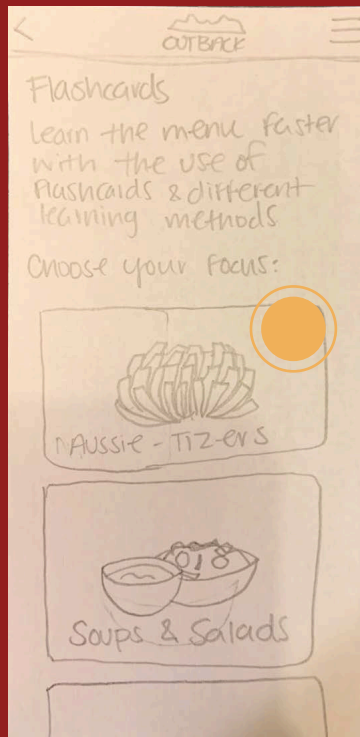 OUTBACK
Flashcards
Learn the menu faster
with the use of
flashcards & different
learning methods
Choose your focus:
Aussie-Tiz-ers
Soups & Salads